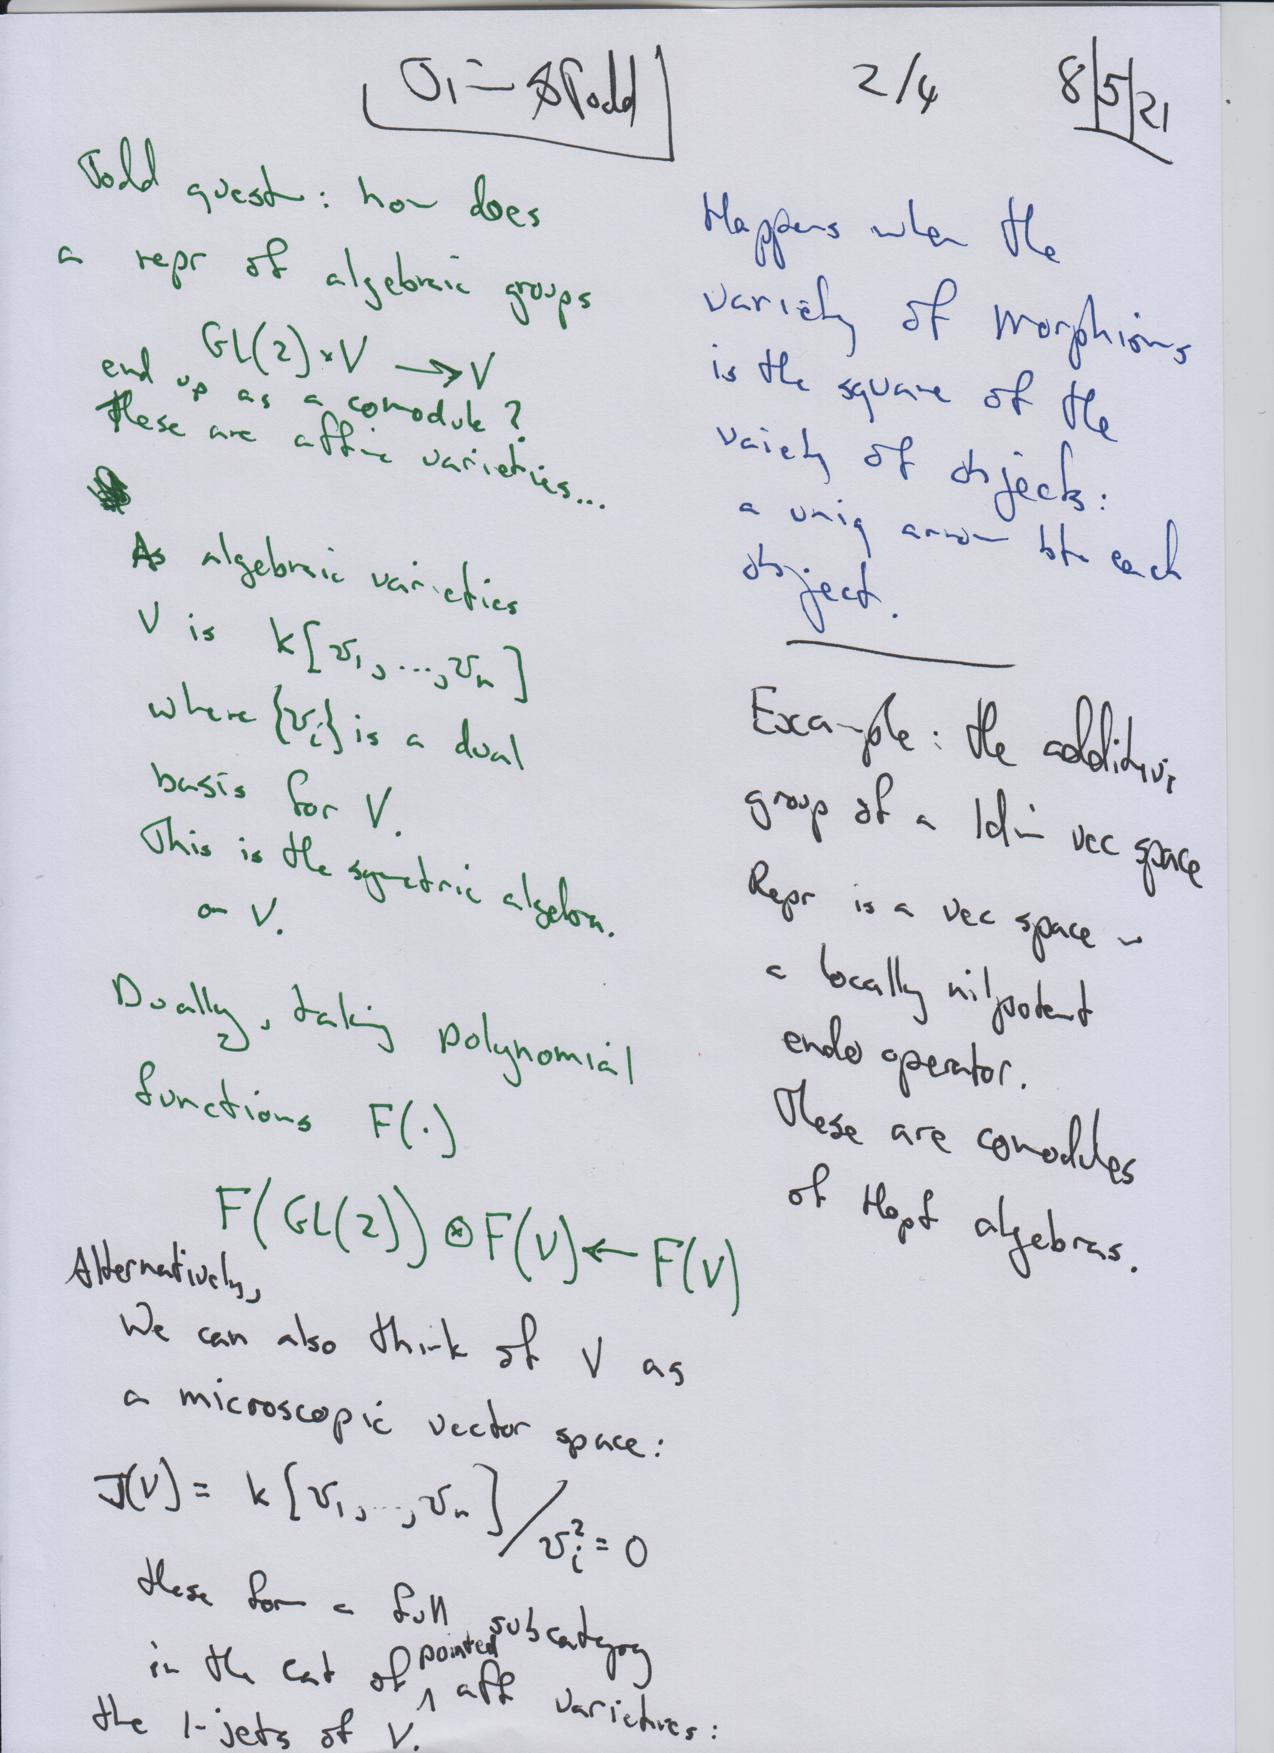 Oi — Todd
2/4
8/5/21
Todd quest: how does
a repr of algebraic groups
GL(2) × V → V
end up as a comodule?
These are affine varieties...
As algebraic varieties
V is k[v₁, ..., vₙ]
where {vᵢ} is a dual
basis for V.
This is the symetric algebra
on V.
Dually, taking polynomial
functions F(·)
F(GL(2)) ⊗ F(V) ← F(V)
Alternatively,
We can also think of V as
a microscopic vector space:
J(V) = k[v₁, ..., vₙ] / vᵢ² = 0
these form a full subcategory
in the cat of pointed aff varieties:
the 1-jets of V.
Happens when the
variety of morphisms
is the square of the
variety of objects:
a uniq arrow btn each
object.
Example: the additive
group of a 1dim vec space
Repr is a vec space w
a locally nilpotent
endo operator.
These are comodules
of Hopf algebras.